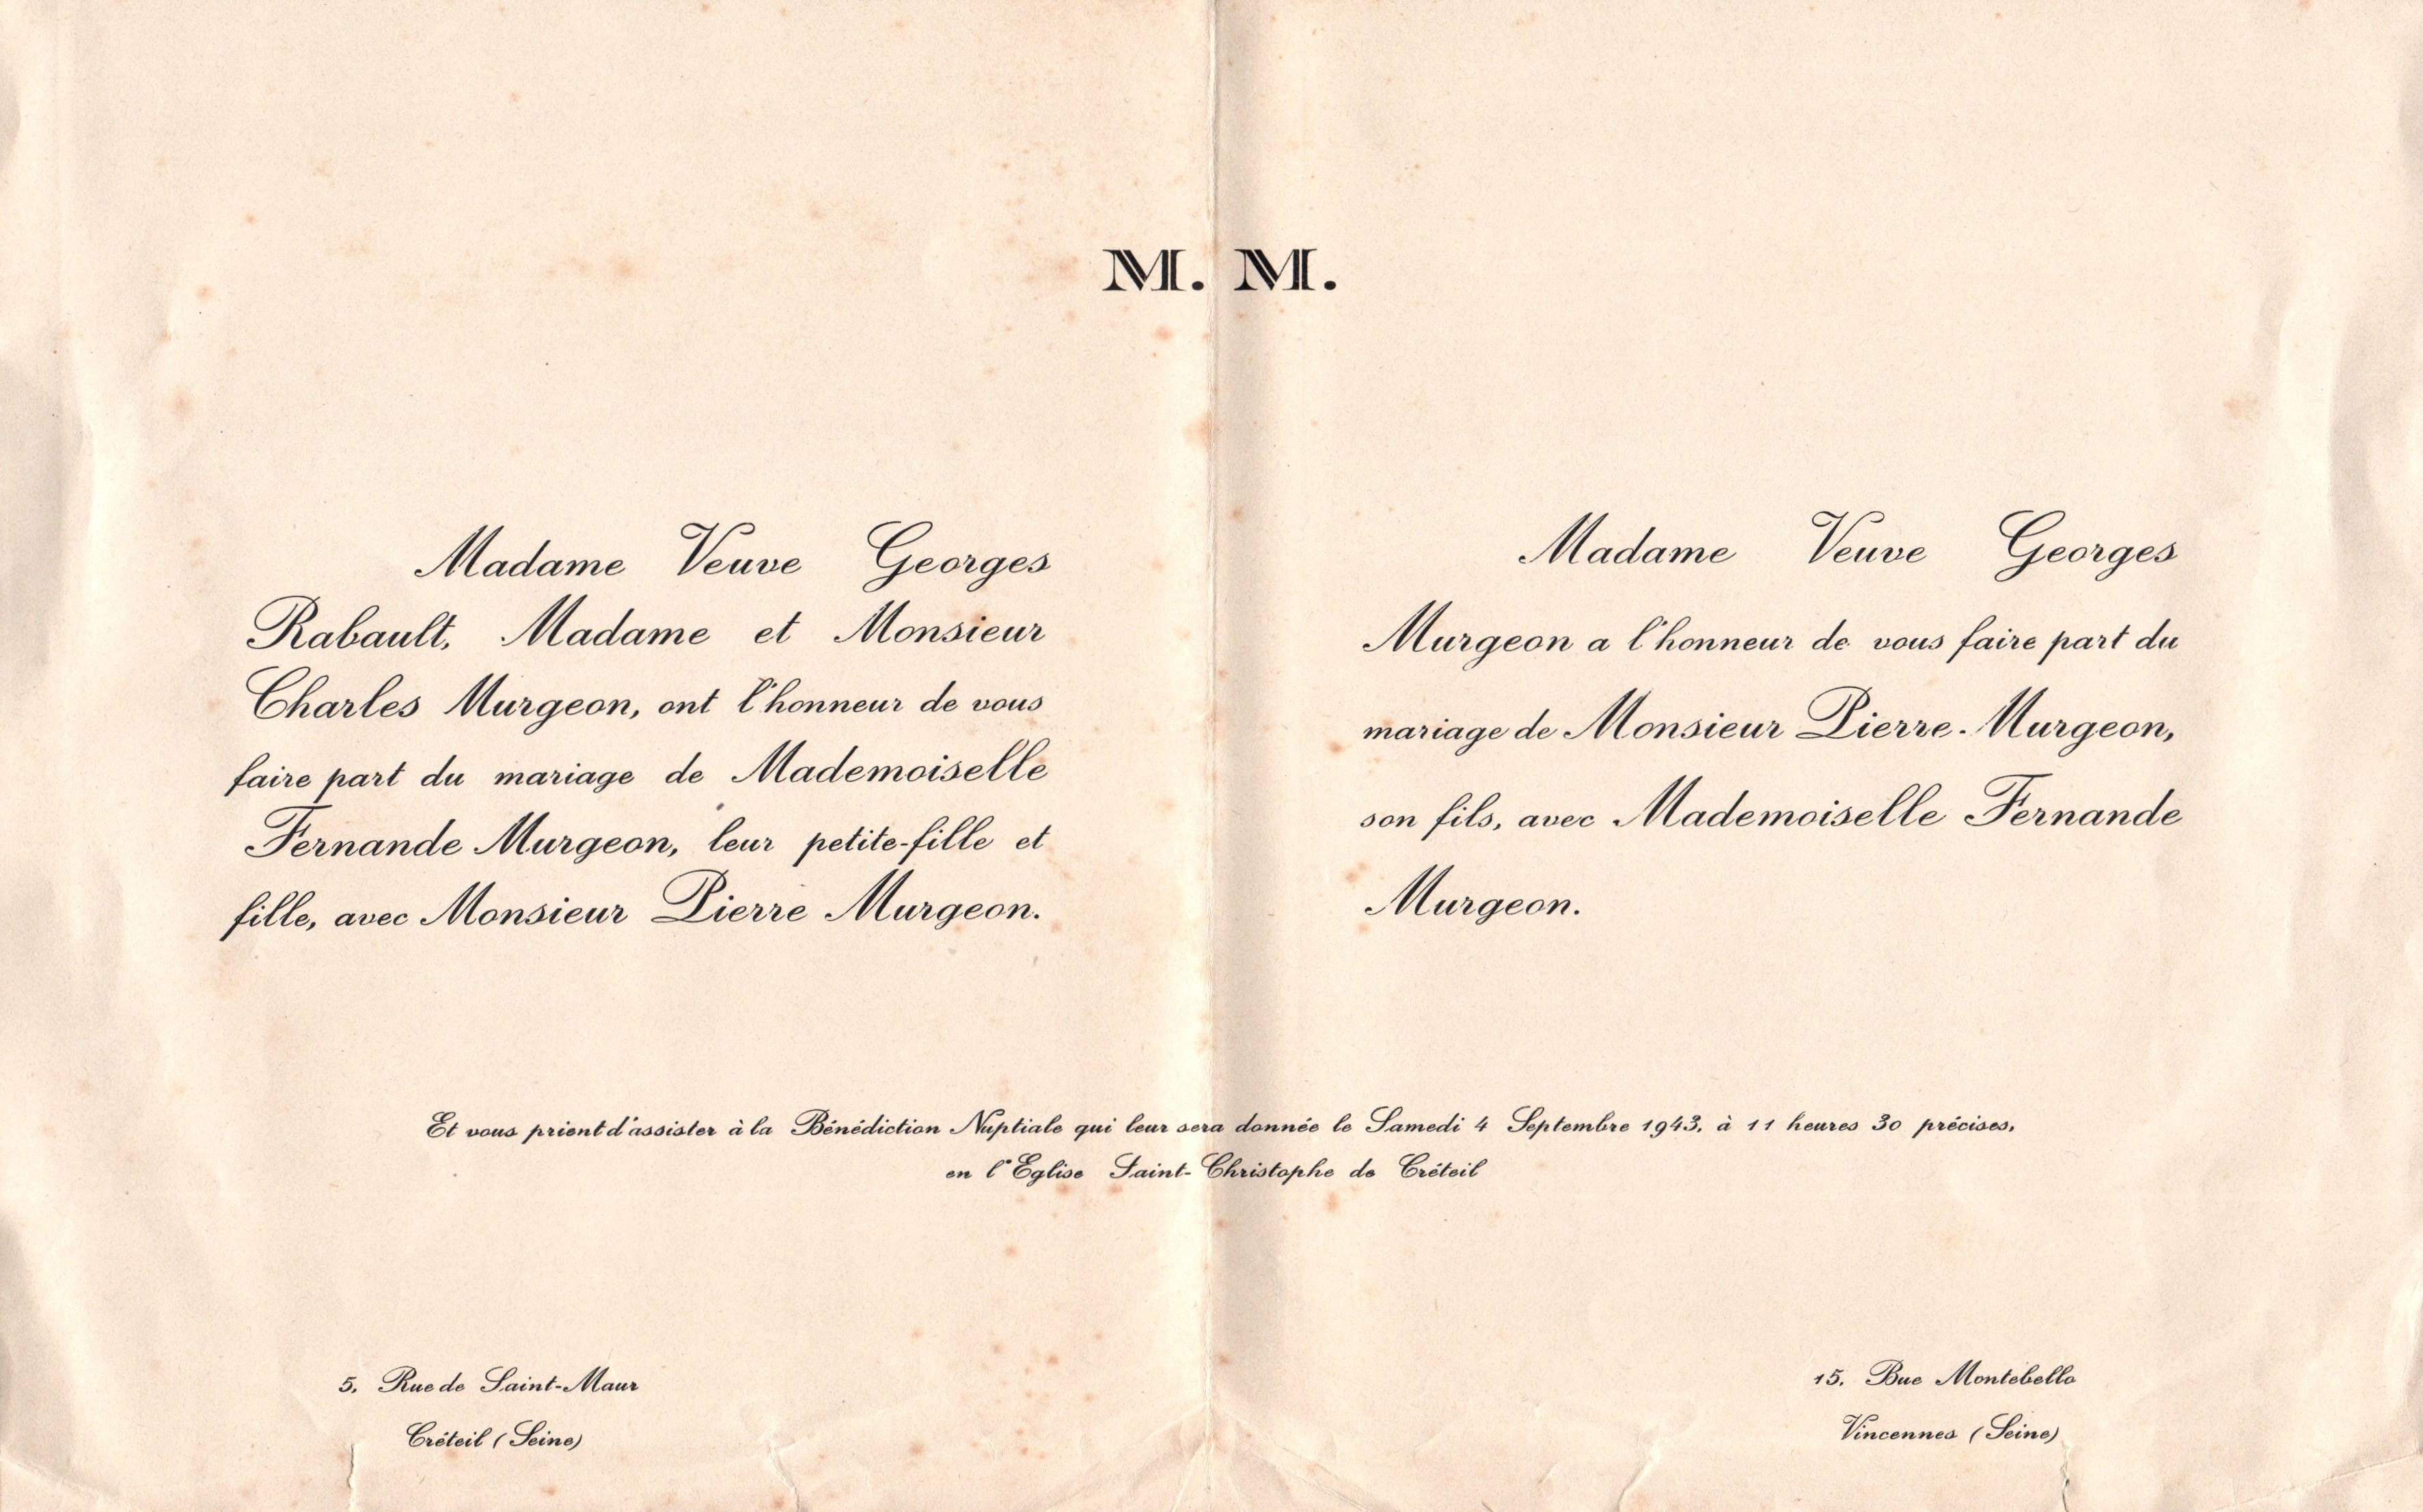 M. M.
Madame Veuve Georges
Rabault, Madame et Monsieur
Charles Murgeon, ont l'honneur de vous
faire part du mariage de Mademoiselle
Fernande Murgeon, leur petite-fille et
fille, avec Monsieur Pierre Murgeon.
Madame Veuve Georges
Murgeon a l'honneur de vous faire part du
mariage de Monsieur Pierre-Murgeon,
son fils, avec Mademoiselle Fernande
Murgeon.
Et vous prient d'assister à la Bénédiction Nuptiale qui leur sera donnée le Samedi 4 Septembre 1943, à 11 heures 30 précises,
en l'Eglise Saint-Christophe de Créteil
5, Rue de Saint-Maur
Créteil (Seine)
15, Bue Montebello
Vincennes (Seine)